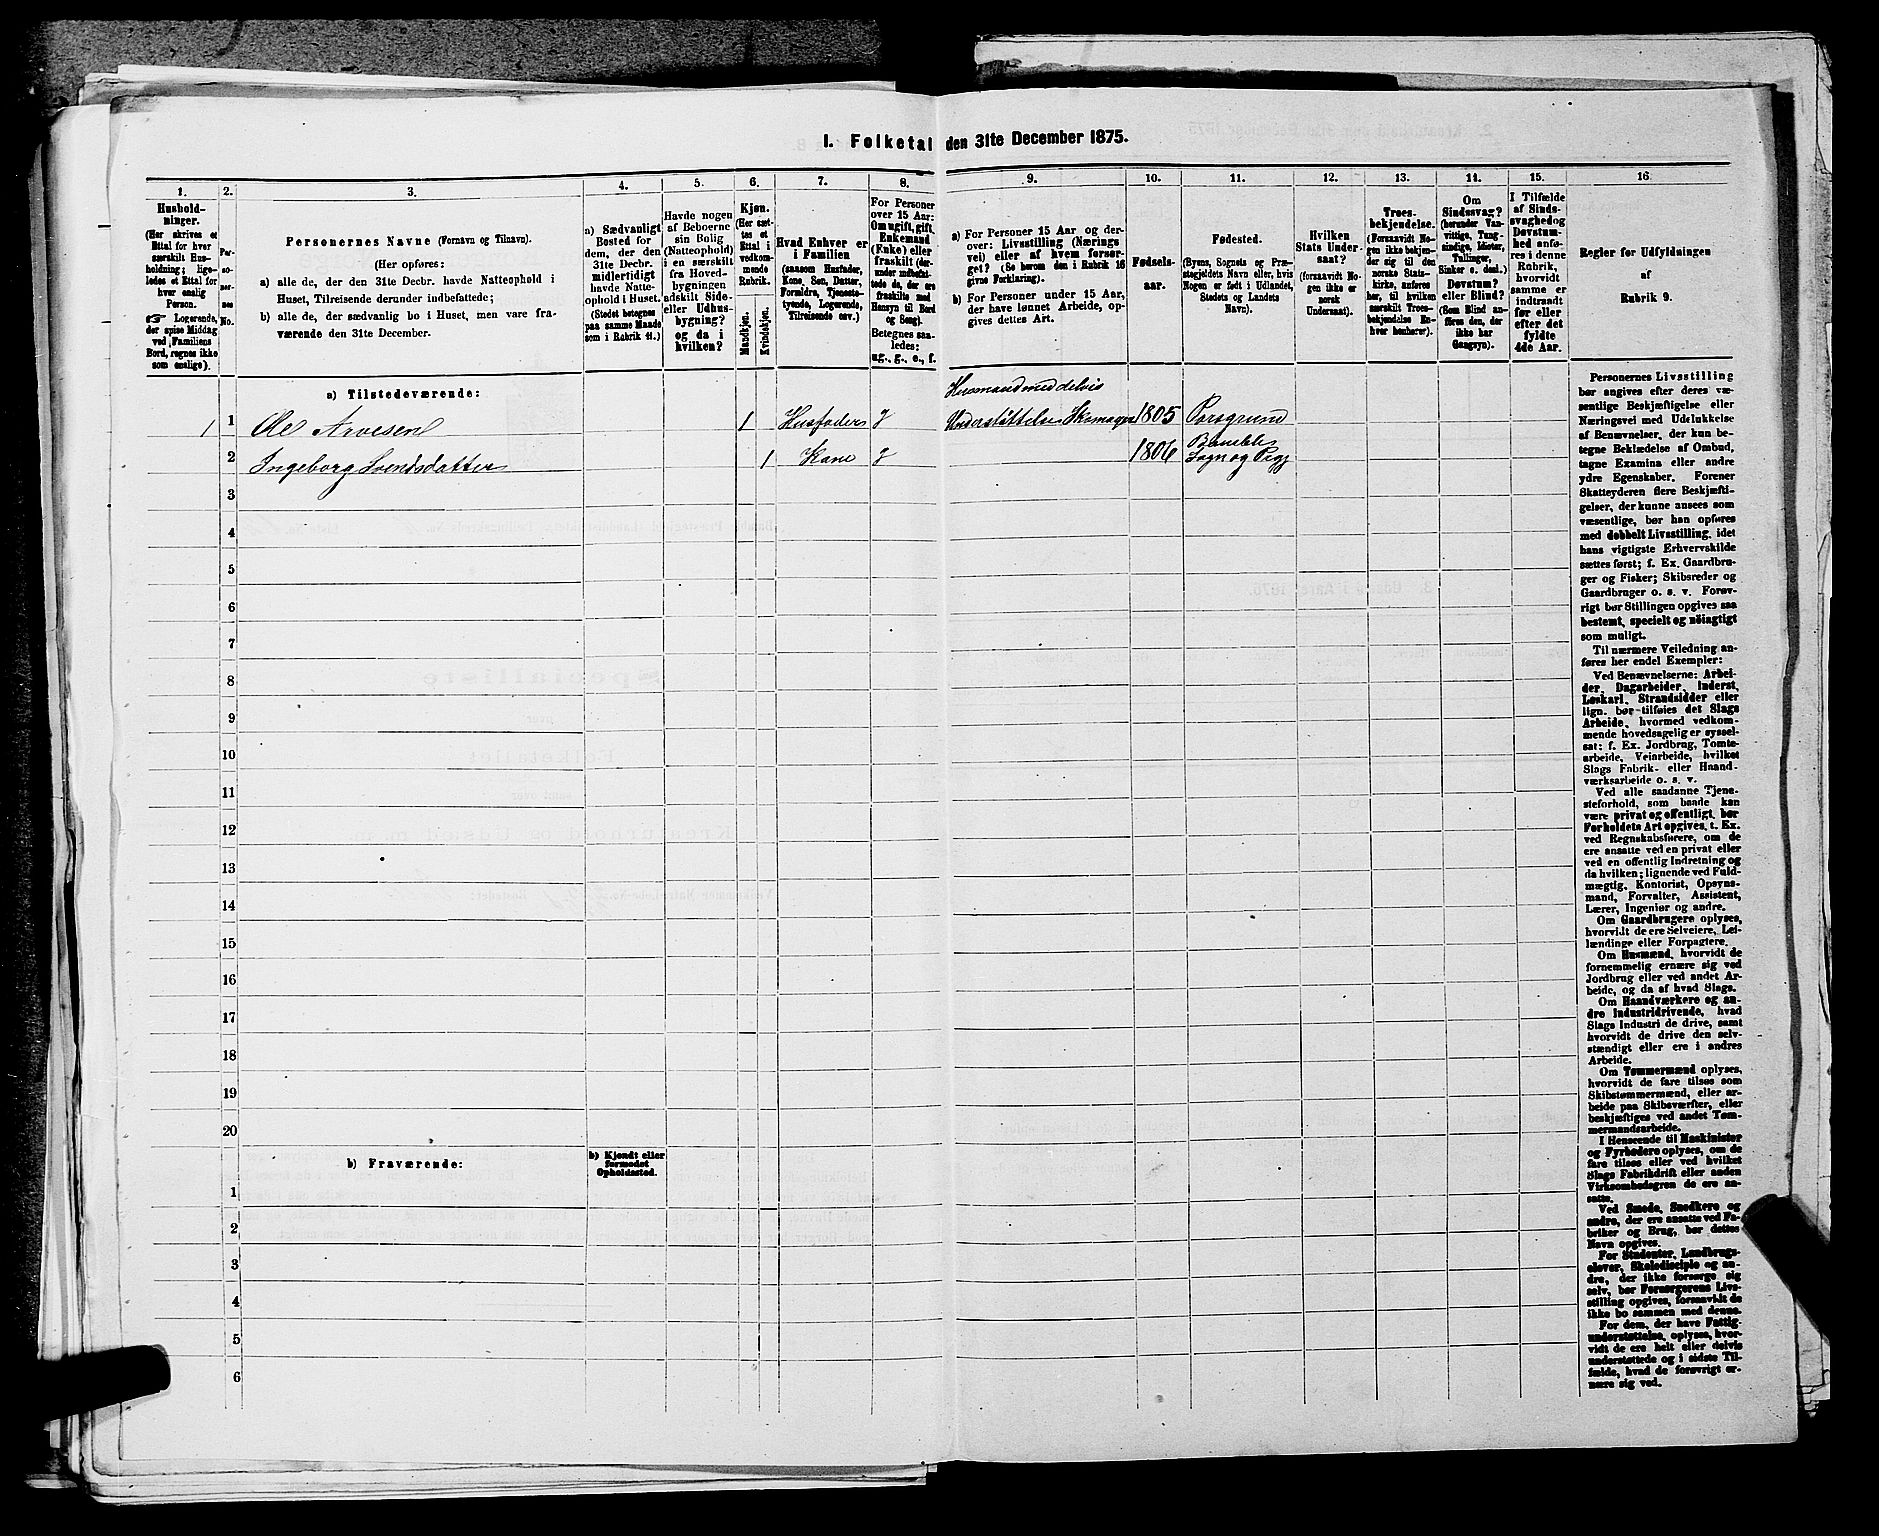 I. Folketal den 31te December 1875.
1. 2. 3. 4. 5. 6. 7. 8. 9. 10. 11. 12. 13. 14. 15. 16
Hushold-
ninger.
(Her skrives et
Ettal for hver
særskilt Hus-
holdning; lige-
ledes et Ettal for
hver enslig
Person.
☞ Logerende,
der spise Middag
ved Familiens
Bord, regnes ikke
som enslige).
Per-
so-
ner-
nes
No.
Personernes Navne (Fornavn og Tilnavn).
(Her opføres:
a) alle de, der den 31te Decbr. havde Natteophold i
Huset, Tilreisende derunder indbefattede;
b) alle de, der sædvanlig bo i Huset, men vare fra-
værende den 31te December.
a) Sædvanligt
Bosted for
dem, der den
31te Decbr.
midlertidigt
havde Natte-
ophold i Huset.
(Stedet betegnes
paa samme Maade
som i Rubrik 11.)
Havde nogen
af Beboerne
sin Bolig
(Natteophold)
i en særskilt
fra Hoved-
bygningen
adskilt Side-
eller Udhus-
bygning?
og da i
hvilken?
Kjøn.
(Her sæt-
tes et
Ettal i
vedkom-
mende
Rubrik.
Mandkjøn.
Kvindekjøn.
Hvad Enhver er
i Familien
(saasom Husfader,
Kone, Søn, Datter,
Forældre, Tjeneste-
tyende, Logerende,
Tilreisende osv.)
For Personer
over 15 Aar:
Om ugift, gift,
Enkemand
(Enke) eller
fraskilt (der-
under indbefat-
tede de, der ere
fraskilte med
Hensyn til Bord
og Seng).
Betegnes saa-
ledes:
ug., g., e., f.
a) For Personer 15 Aar og der-
over: Livsstilling (Nærings
vei) eller af hvem forsør-
get? (Se herom den i Rubrik 16
givne Forklaring).
b) For Personer under 15 Aar,
der have lønnet Arbeide, op-
gives dettes Art.
Fødsels-
aar.
Fødested.
(Byens, Sognets og Præ-
stegjeldets Navn eller, hvis
Nogen er født i Udlandet,
Stedets og Landets
Navn).
Hvilken
Stats Under-
saat?
(forsaavidt No-
gen ikke er
norsk
Undersaat).
Troes-
bekjendelse.
(Forsaavidt No-
gen ikke bekjen-
der sig til den
norske Stats-
kirke, anføres
her, til hvilken
særskilt Troes-
bekjendelse En-
hver henhører).
Om
Sindssvag?
(herunder Van-
vittige, Tung-
sindige, Idioter,
Tullinger,
Sinker o. desl.)
Døvstum?
eller Blind?
(Som Blind an-
føres den, der
ikke har
Gangsyn).
I Tilfælde
af Sinds-
svaghed og
Døvstum-
hed anfø-
res i denne
Rubrik,
hvorvidt
samme er
indtraadt
før eller
efter det
fyldte
4de Aar.
Regler for Udfyldningen
af
Rubrik 9.
a) Tilstedeværende:
Husmand med delvis
1 1 Ole Arvesen 1 Husfader g Understøttelse Skomager 1805 Porsgrund
Bamble
2 Ingeborg Svendsdatter 1 Kone g 1806 Sogn og Prgj
3
4
5
6
7
8
9
10
11
12
13
14
15
16
17
18
19
20
b) Fraværende:
b) Kjendt eller
formodet
Opholdssted.
1
2
3
4
5
6
Personernes Livsstilling
bør angives efter deres væ-
sentlige Beskjæftigelse eller
Næringsvei med Udelukkelse
af Benævnelser, der kun be-
tegne Beklædelse af Ombud,
tagne Examina eller andre
ydre Egenskaber. Forener
Skatteyderen flere Beskjæfti-
gelser, der kunne ansees som
væsentlige, bør han opføres
med dobbelt Livsstilling, idet
hans vigtigste Erhvervskilde
sættes først; f. Ex. Gaardbru-
ger og Fisker; Skibsreder og
Gaardbruger o. s. v. Forøv-
rigt bør Stillingen opgives saa
bestemt, specielt og nöiagtigt
som muligt.
Til nærmere Veiledning an-
føres her endel Exempler:
Ved Benævnelserne: Arbei-
der, Dagarbeider, Inderst,
Løskarl, Strandsidder eller
lign. bør tilføies det Slags
Arbeide, hvormed vedkom-
mende hovedsagelig er syssel-
sat: f. Ex. Jordbrug, Tomte-
arbeide, Veiarbeide, hvilket
Slags Fabrik- eller Haand-
værksarbeide o. s. v.
Ved alle saadanne Tjene-
steforhold, som baade kan
være privat og offentligt, bør
Forholdets Art opgives, t. Ex.
ved Regnskabsførere, om de
ere ansatte ved en privat eller
ved en offentlig Indretning og
da hvilken; lignende ved Fuld-
mægtig, Kontorist, Opsyns-
mand, Forvalter, Assistent,
Lærer, Ingeniør og andre.
Om Gaardbrugere oplyses,
hvorvidt de ere Selveiere, Lei-
lændinge eller Forpagtere.
Om Husmænd, hvorvidt de
fornemmelig ernære sig ved
Jordbrug eller ved andet Ar-
beide, og da af hvad Slags.
Om Haandværkere og an-
dre Industridrivende, hvad
Slags Industri de drive, samt
hvorvidt de drive den selv-
stændigt eller ere i andres
Arbeide.
Om Tømmermænd oplyses,
hvorvidt de fare tilsøs som
Skibstømmermænd, eller ar-
beide paa Skibsværfter, eller
beskjæftiges ved andet Tøm-
mermandsarbeide.
I Henseende til Maskinister
og Fyrbødere oplyses, om de
fare tilsøs eller ved hvilket
Slags Fabrikdrift eller anden
Virksombedsgren de ere an-
satte.
Ved Smede, Snedkere og
andre, der ere ansatte ved Fa-
briker og Brug, bør dettes
Navn opgives.
For Studenter, Landbrugs-
elever, Skoledisciple og an-
dre, der ikke forsørge sig
selv, bør Forsørgerens Livs-
stilling opgives, forsaavidt de
ikke bo sammen med denne.
For dem, der have Fattig-
understøttelse, oplyses, hvor-
vidt de ere helt eller delvis
understøttede og i sidste Til-
fælde, hvad de forøvrigt er-
nære sig ved.